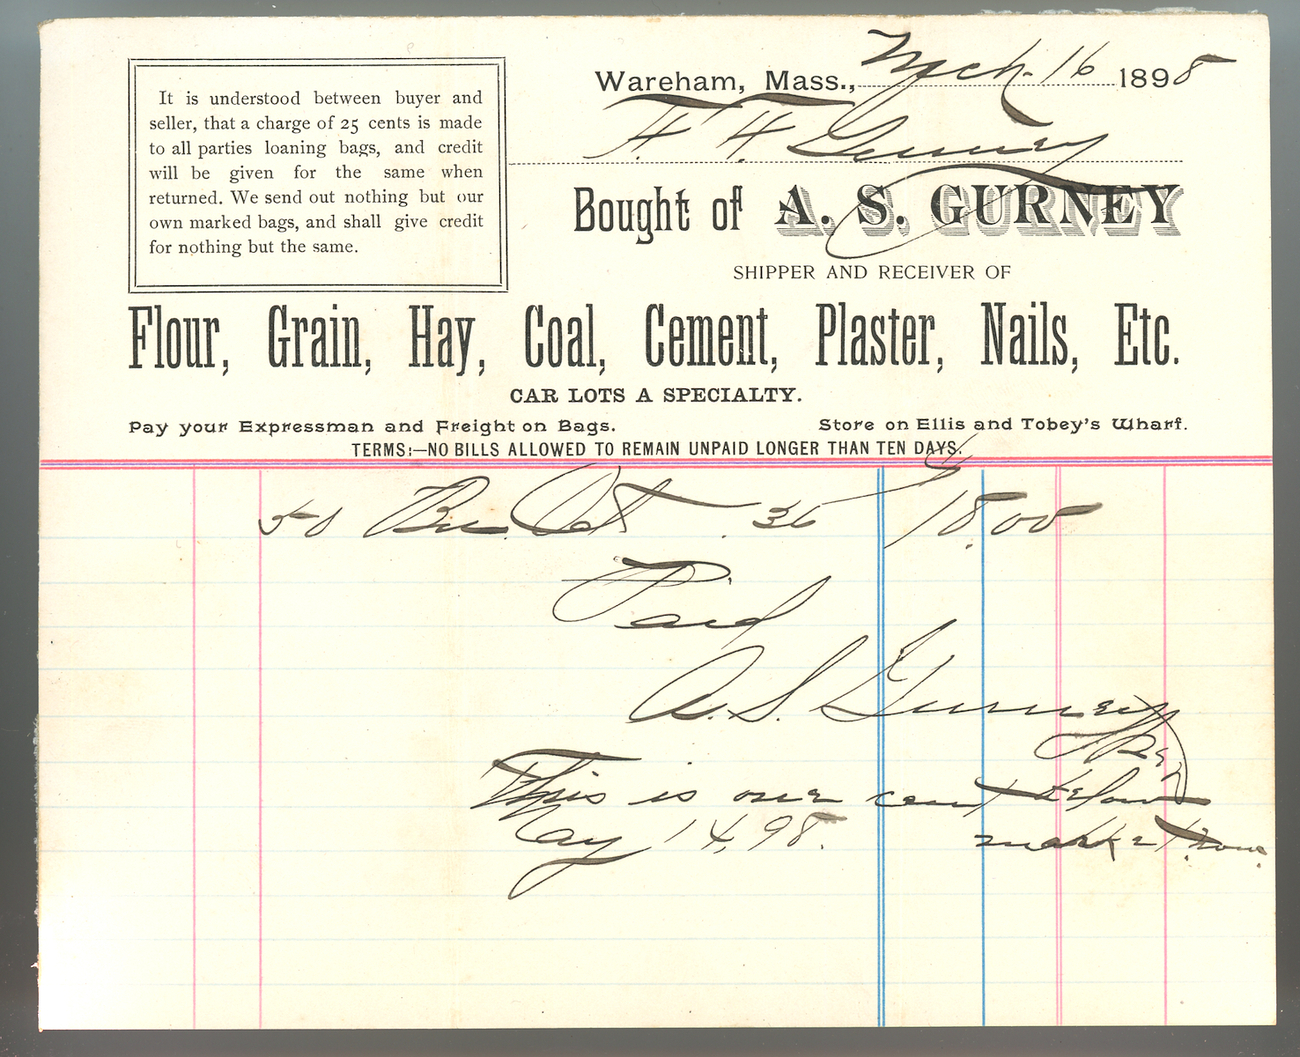 It is understood between buyer and
seller, that a charge of 25 cents is made
to all parties loaning bags, and credit
will be given for the same when
returned. We send out nothing but our
own marked bags, and shall give credit
for nothing but the same.
Wareham, Mass., Mch. 16 1898
F. H. Gurney
Bought of A. S. GURNEY
SHIPPER AND RECEIVER OF
Flour, Grain, Hay, Coal, Cement, Plaster, Nails, Etc.
CAR LOTS A SPECIALTY.
Pay your Expressman and Freight on Bags.
Store on Ellis and Tobey's Wharf.
TERMS:—NO BILLS ALLOWED TO REMAIN UNPAID LONGER THAN TEN DAYS.
50 Bu. Oats 36 18.00
Paid
A. S. Gurney
This is one cent below
May 14, 98. market